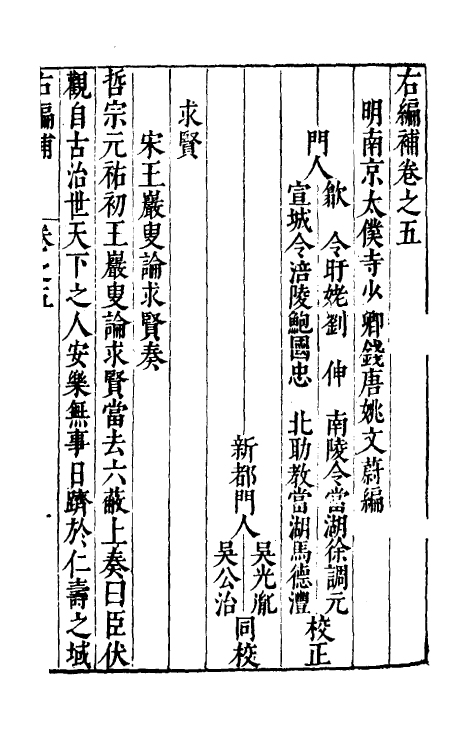 右編補卷之五
明南京太僕寺少卿錢唐姚文蔚編
門人
歙　令盱姥劉　伸　南陵令當湖徐調元
宣城令涪陵鮑國忠　北助教當湖馬德灃
校正
新都門人
吳光胤
吳公治
同校
求賢
宋王巖叟論求賢奏
哲宗元祐初王巖叟論求賢當去六蔽上奏曰臣伏
觀自古治世天下之人安樂無事日躋於仁壽之域
右編補　卷之五